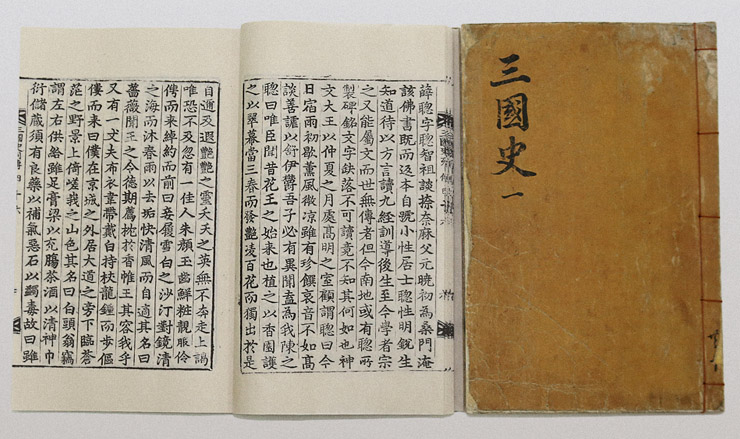 三國史 一
薛聰字聰智祖談捺奈麻父元曉初爲桑門淹
該佛書既而返本自號小性居士聰性明銳生
知道待以方言讀九經訓導後生至今學者宗
之又能屬文而世無傳者但今南地或有聰所
製碑銘文字缺落不可讀竟不知其何如也神
文大王以仲夏之月處髙明之室顧謂聰曰今
日宿雨初歇薰風微凉雖有珍饌哀音不如髙
談善謔以舒伊欝吾子必有異聞盍爲我陳之
聰曰唯臣聞昔花王之始來也植之以香園護
之以翠幕當三春而發艷凌百花而獨出於是
自邇及遐艷艷之靈夭夭之英無不奔走上謁
唯恐不及忽有一佳人朱顔玉齒鮮粧靚服伶
俜而來綽約而前曰妾履雪白之沙汀對鏡清
之海而沐春雨以去垢快清風而自適其名曰
薔薇聞王之令德期薦枕於香帷王其容我乎
又有一丈夫布衣韋帶戴白持杖龍鍾而步傴
僂而來曰僕在京城之外居大道之旁下臨蒼
茫之野景上倚嵯峨之山色其名曰白頭翁竊
謂左右供給雖足膏粱以充膓茶酒以清神巾
衍儲藏須有良藥以補氣惡石以蠲毒故曰雖